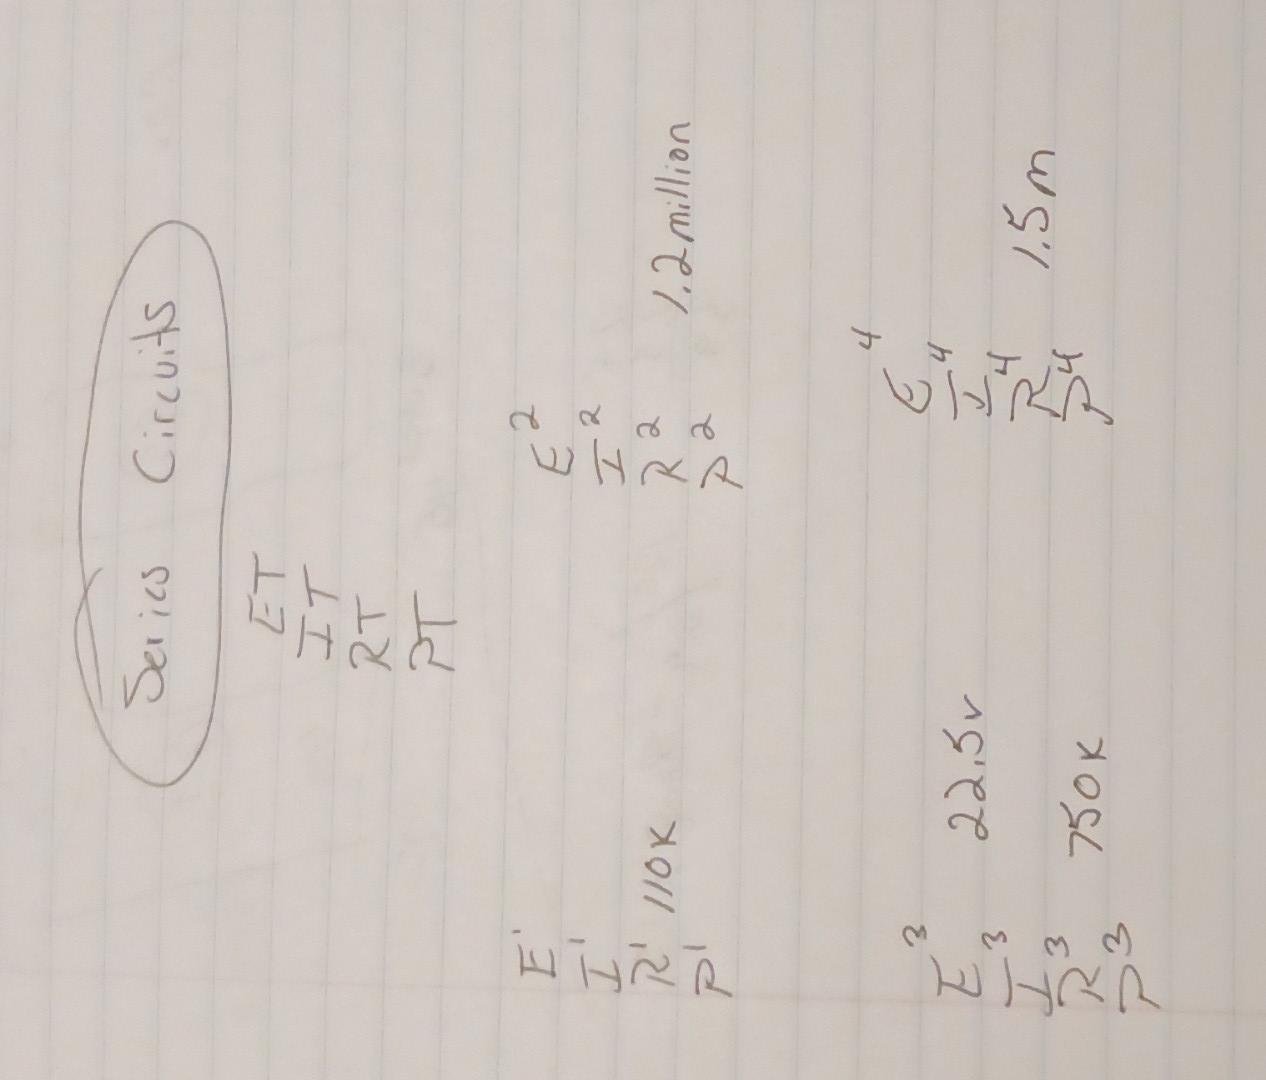 Series Circuits
ET
IT
RT
PT
E¹
I¹
R¹ 110K
P¹
E²
I²
R² 1.2 million
P²
E³ 22.5v
I³
R³ 750K
P³
E⁴
I⁴
R⁴ 1.5m
P⁴